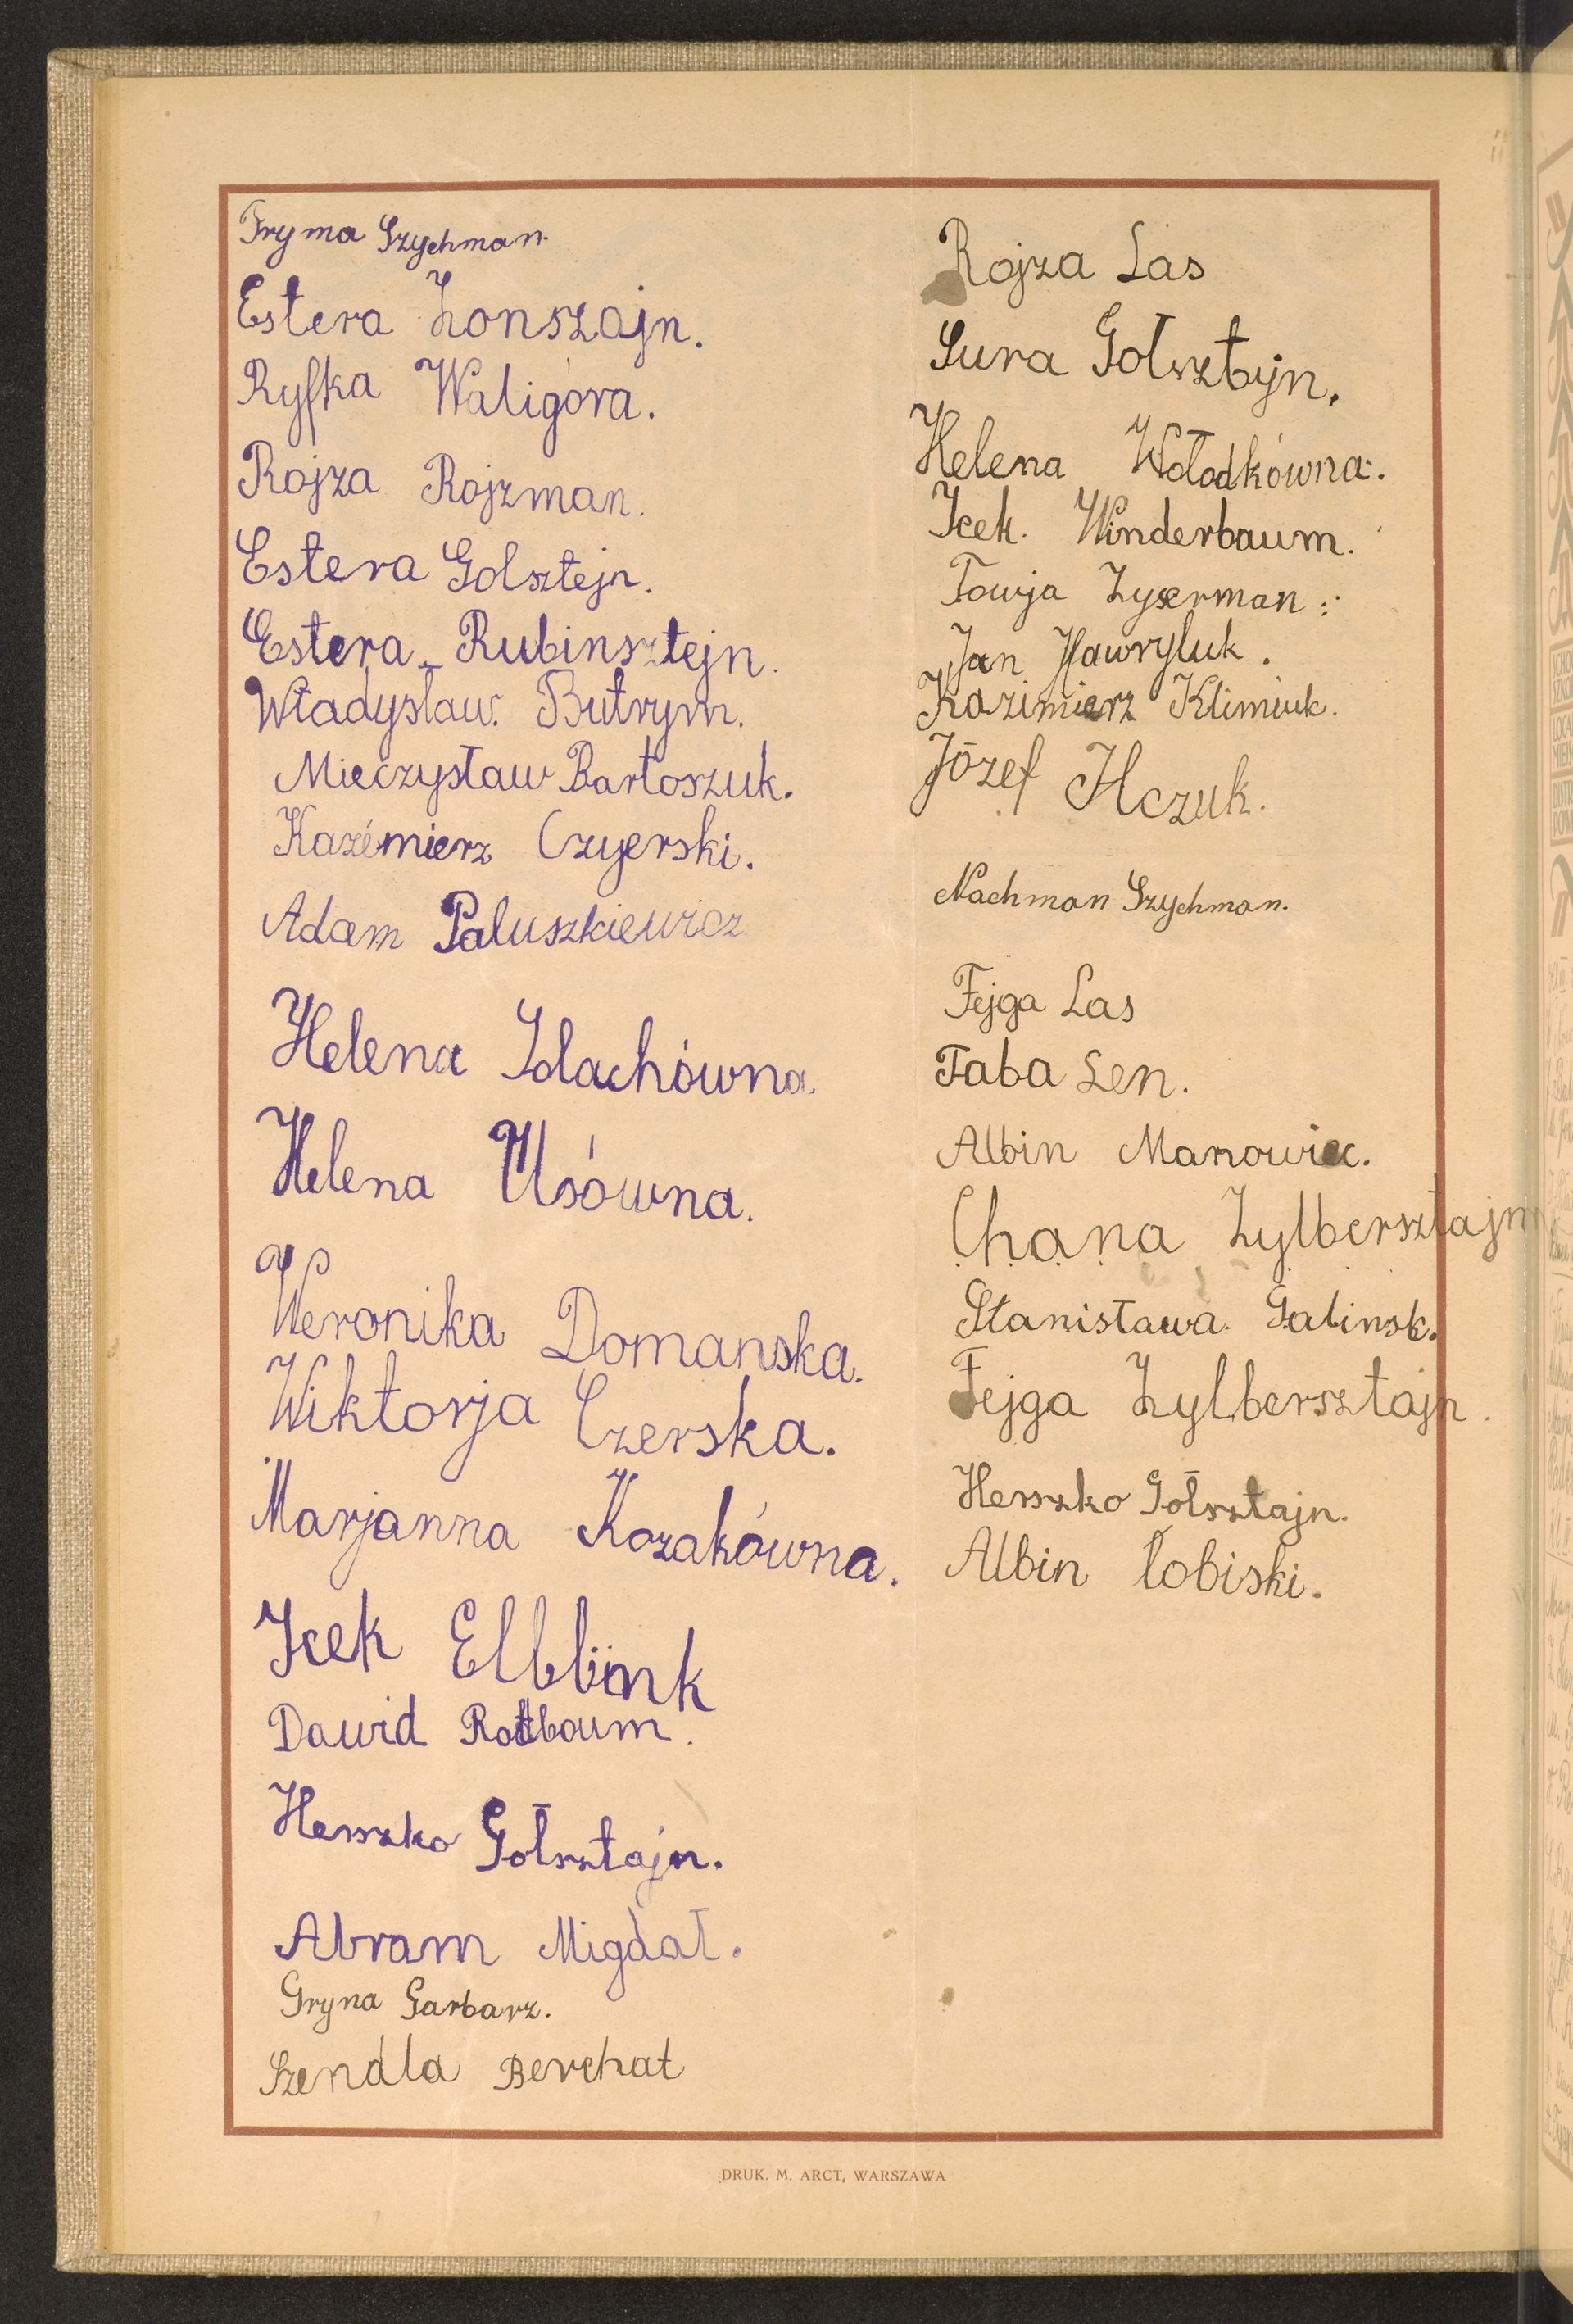 Fryma Szychman.
Estera Zonszajn.
Ryfka Waligóra.
Rojza Rojzman.
Estera Golsztejn.
Estera Rubinsztejn.
Władysław. Butrym.
Mieczysław Bartoszuk.
Kazimierz Czyerski.
Adam Paluszkiewicz
Helena Idachówna.
Helena Usówna.
Weronika Domanska.
Wiktorja Czerska.
Marjanna Kozakówna.
Icek
Dawid Rotbaum.
Herszko Golsztajn.
Abram Migdał.
Gryna Garbarz.
Szendla Berchat
Rojza Las
Sura Golsztajn.
Helena Wołodkówna.
Icek. Winderbaum.
Towja Zyserman.
Jan Hawryluk.
Kazimierz Klimiuk.
Józef Hczuk.
Nachman Szychman.
Fejga Las
Taba Len.
Albin Manowiec.
Chana Zylbersztajn
Stanisława. Galinsk.
Fejga Zylbersztajn.
Herszko Golsztajn.
Albin Łobiski.
DRUK. M. ARCT, WARSZAWA